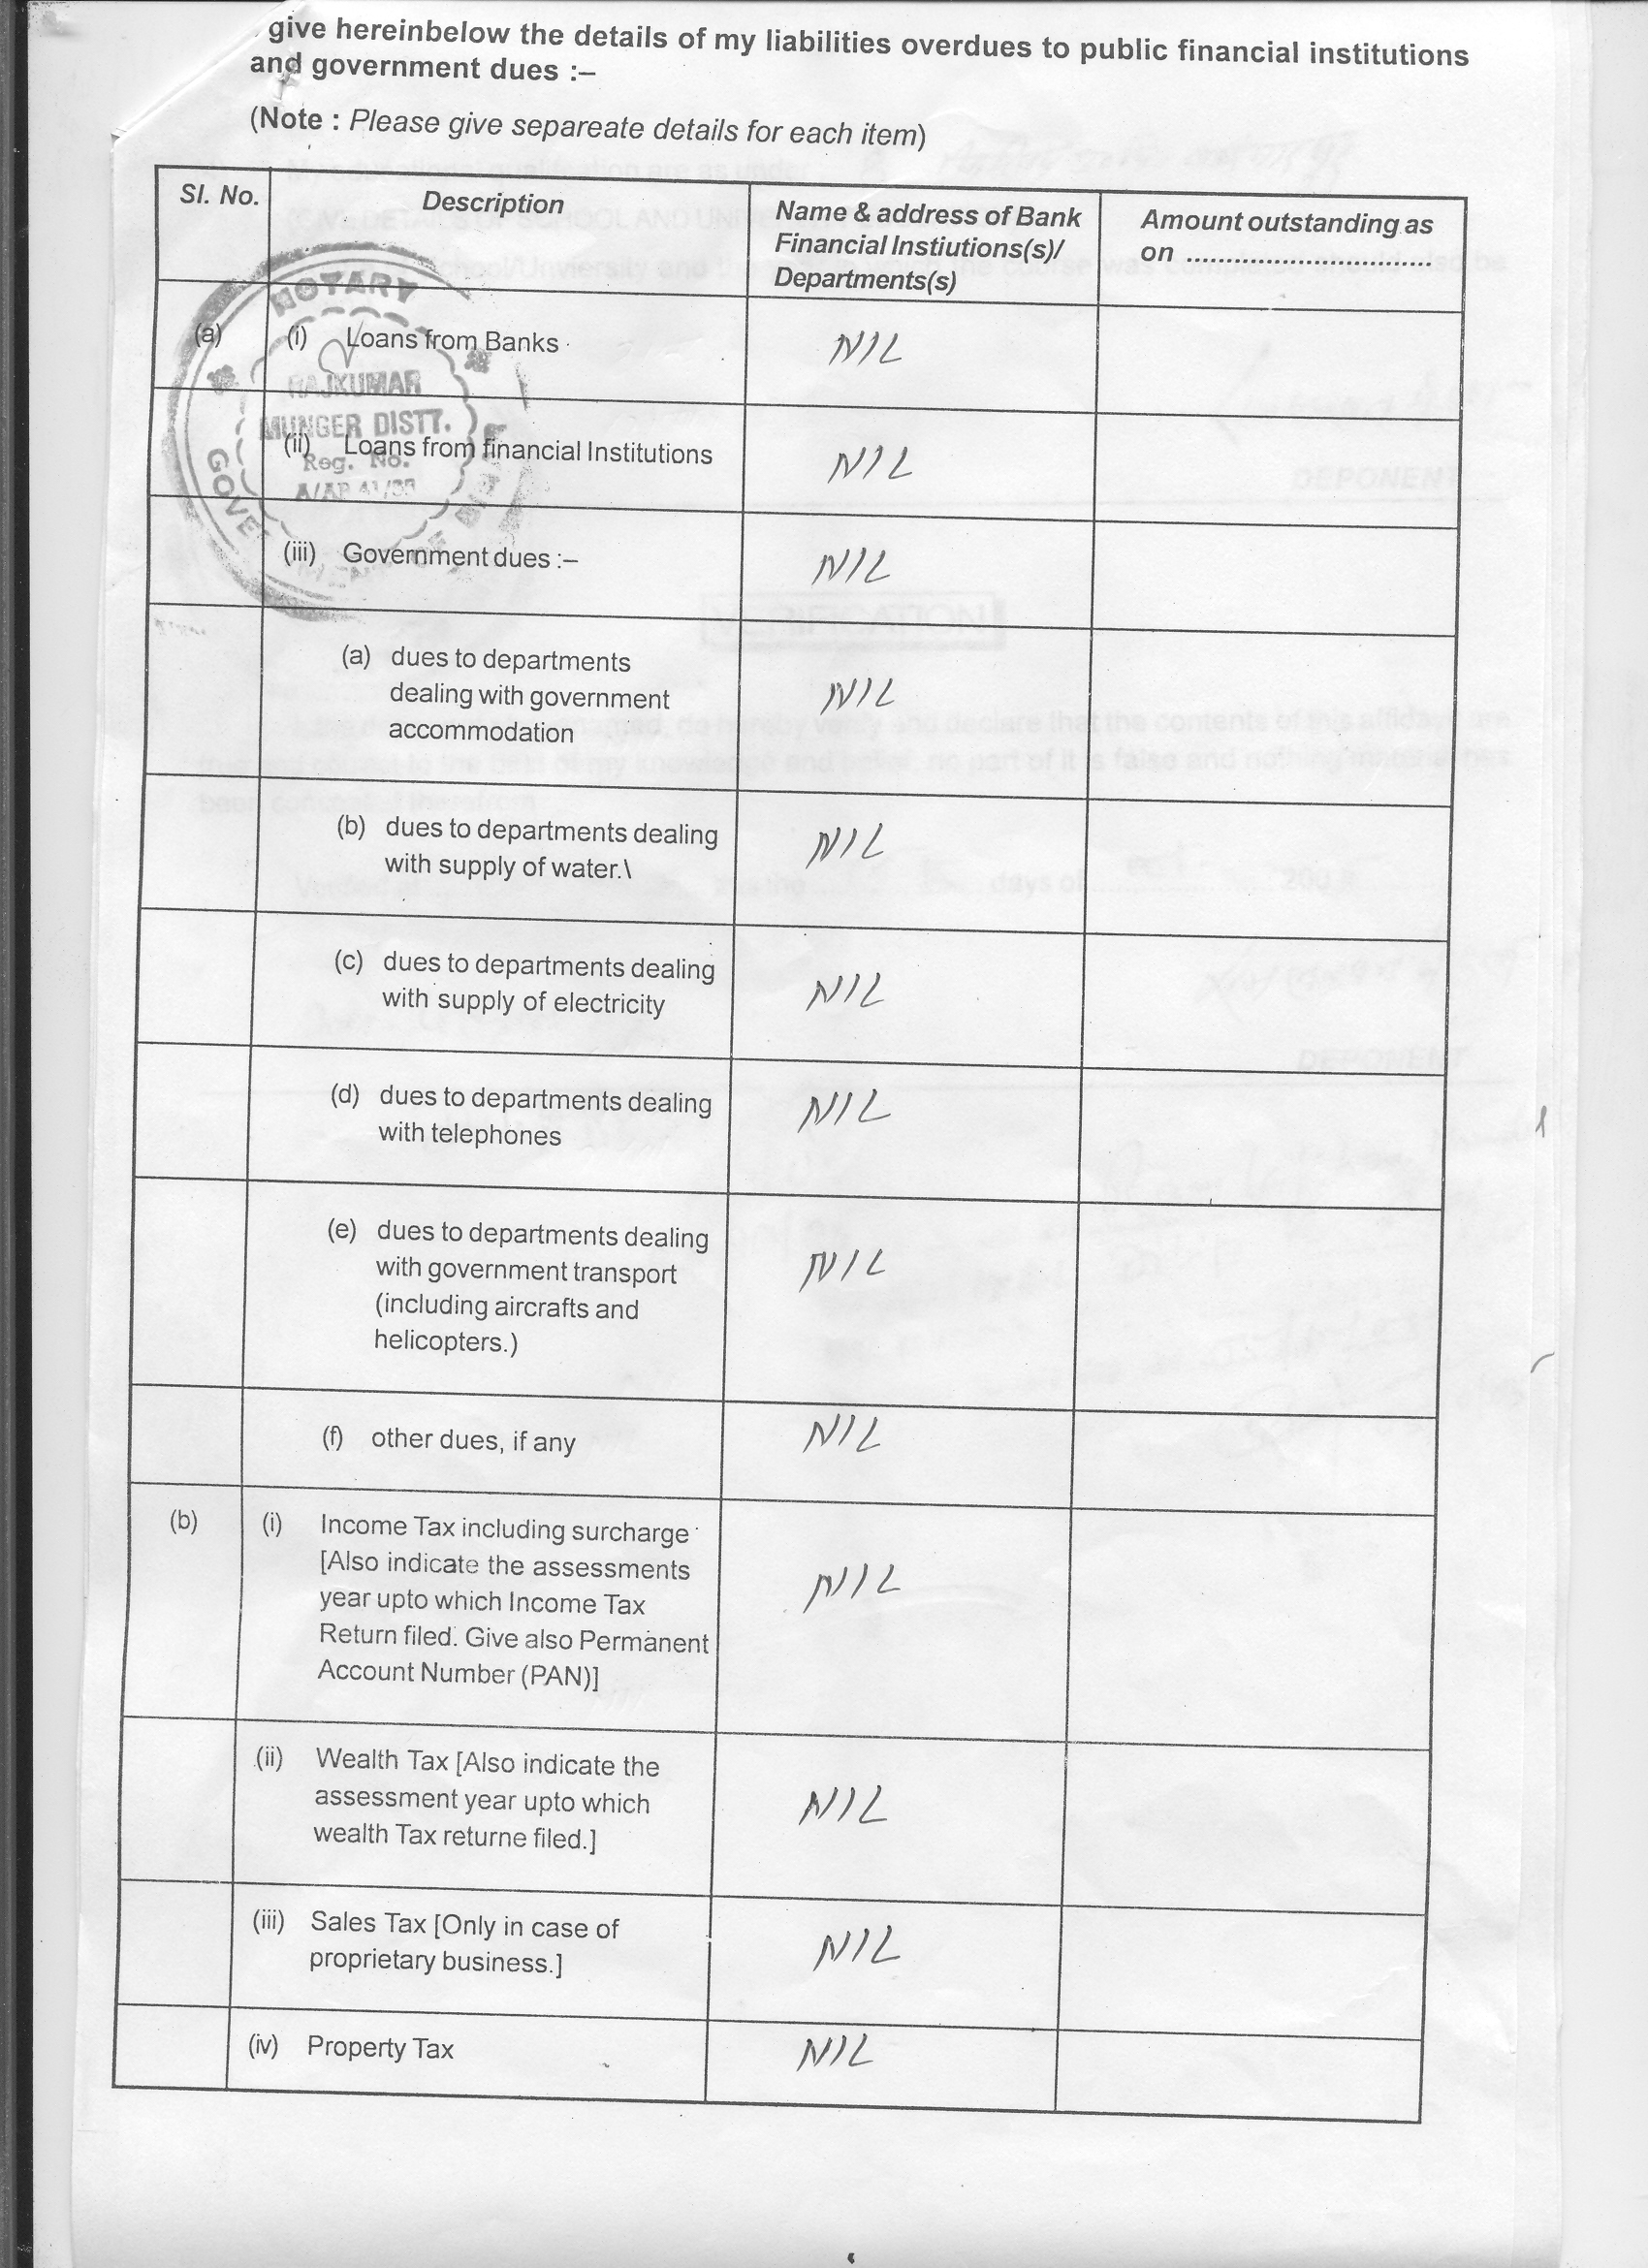 give hereinbelow the details of my liabilities overdues to public financial institutions
and government dues :–
(Note : Please give separeate details for each item)
Sl. No.
Description
Name & address of Bank
Financial Instiutions(s)/
Departments(s)
Amount outstanding as
on ..............................
NOTARY
RAJKUMAR
MUNGER DISTT.
Reg. No.
(a) (i) Loans from Banks
NIL
(ii) Loans from financial Institutions
NIL
(iii) Government dues :–
NIL
(a) dues to departments
dealing with government
accommodation
NIL
(b) dues to departments dealing
with supply of water.\
NIL
(c) dues to departments dealing
with supply of electricity
NIL
(d) dues to departments dealing
with telephones
NIL
(e) dues to departments dealing
with government transport
(including aircrafts and
helicopters.)
NIL
(f) other dues, if any
NIL
(b) (i) Income Tax including surcharge
[Also indicate the assessments
year upto which Income Tax
Return filed. Give also Permanent
Account Number (PAN)]
NIL
(ii) Wealth Tax [Also indicate the
assessment year upto which
wealth Tax returne filed.]
NIL
(iii) Sales Tax [Only in case of
proprietary business.]
NIL
(iv) Property Tax
NIL